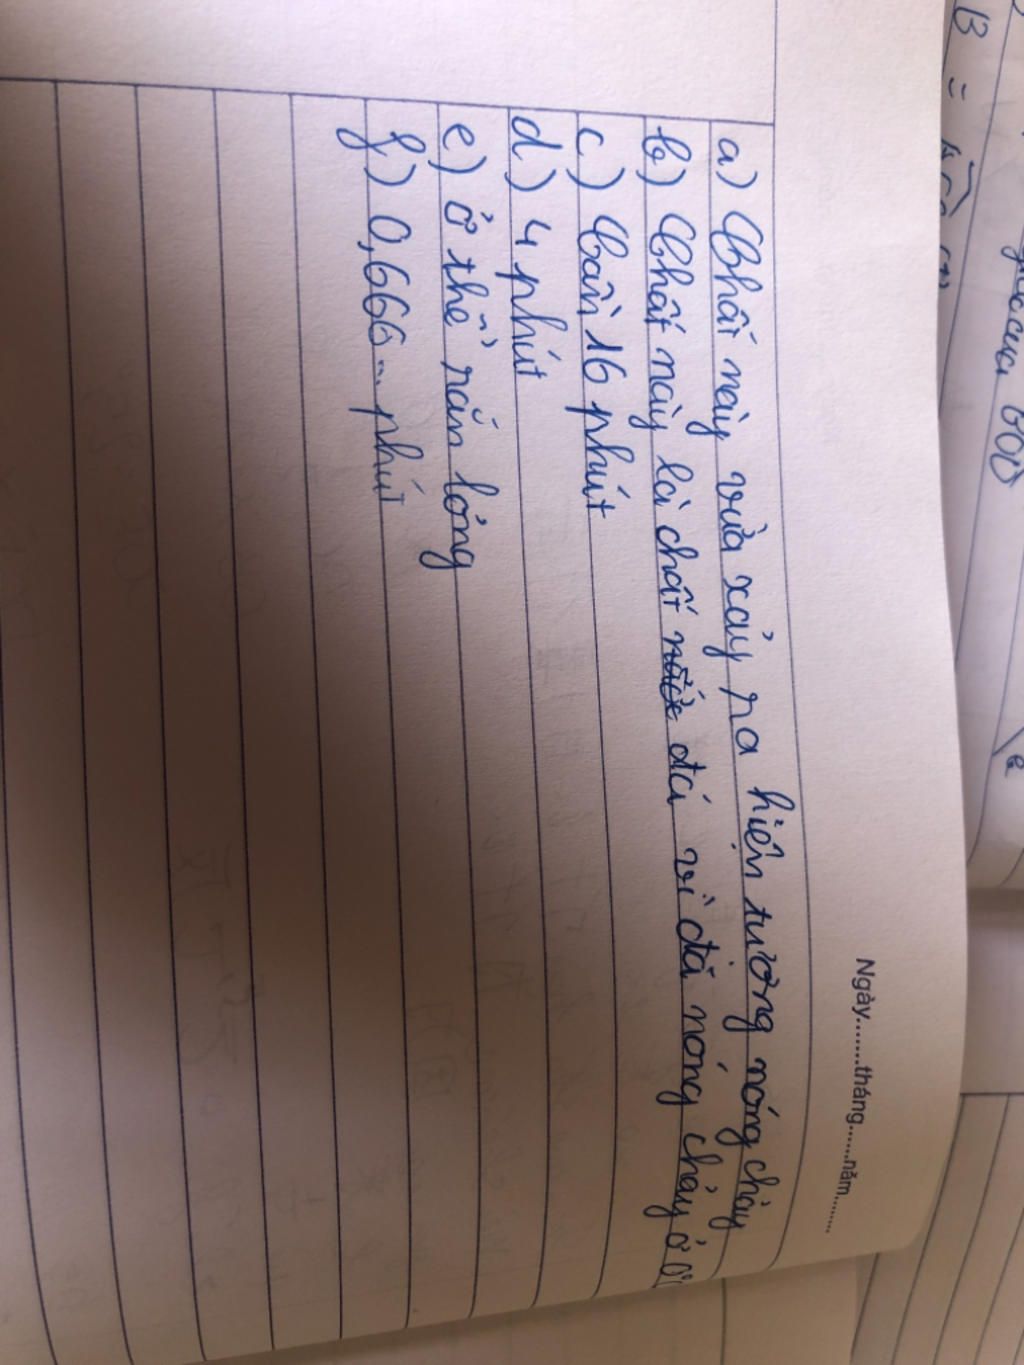 Ngày.......tháng......năm........
a) Chất này vừa xảy ra hiện tượng nóng chảy
b) Chất này là chất nước đá vì đá nóng chảy ở 0°
c) Cần 16 phút
d) 4 phút
e) ở thể rắn lỏng
f) 0,666... phút
B =
60°